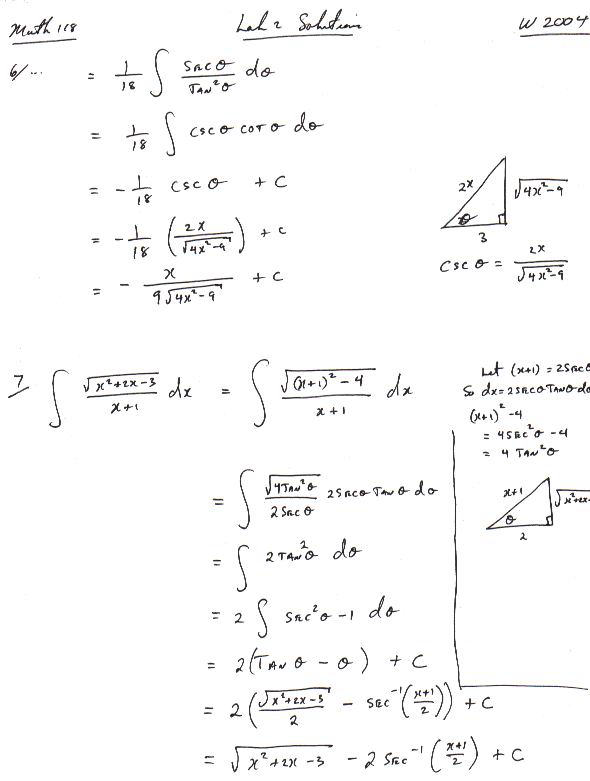 Math 118 Lab 2 Solutions W 2004
6/ ... = 1/18 ∫ secθ/Tan²θ dθ
= 1/18 ∫ cscθ cotθ dθ
= -1/18 cscθ + C
2x √4x²-9 θ 3
= -1/18 (2x/√4x²-9) + C
cscθ = 2x/√4x²-9
= - x/9√4x²-9 + C
7/ ∫ √x²+2x-3/x+1 dx = ∫ √(x+1)²-4/x+1 dx
Let (x+1) = 2secθ
So dx = 2secθ Tanθ dθ
(x+1)²-4
= 4sec²θ -4
= 4 Tan²θ
x+1 √x²+2x- θ 2
= ∫ √4Tan²θ/2secθ 2secθ Tanθ dθ
= ∫ 2Tan²θ dθ
= 2 ∫ sec²θ-1 dθ
= 2(Tanθ - θ) + C
= 2(√x²+2x-3/2 - sec⁻¹(x+1/2)) + C
= √x²+2x-3 - 2sec⁻¹(x+1/2) + C